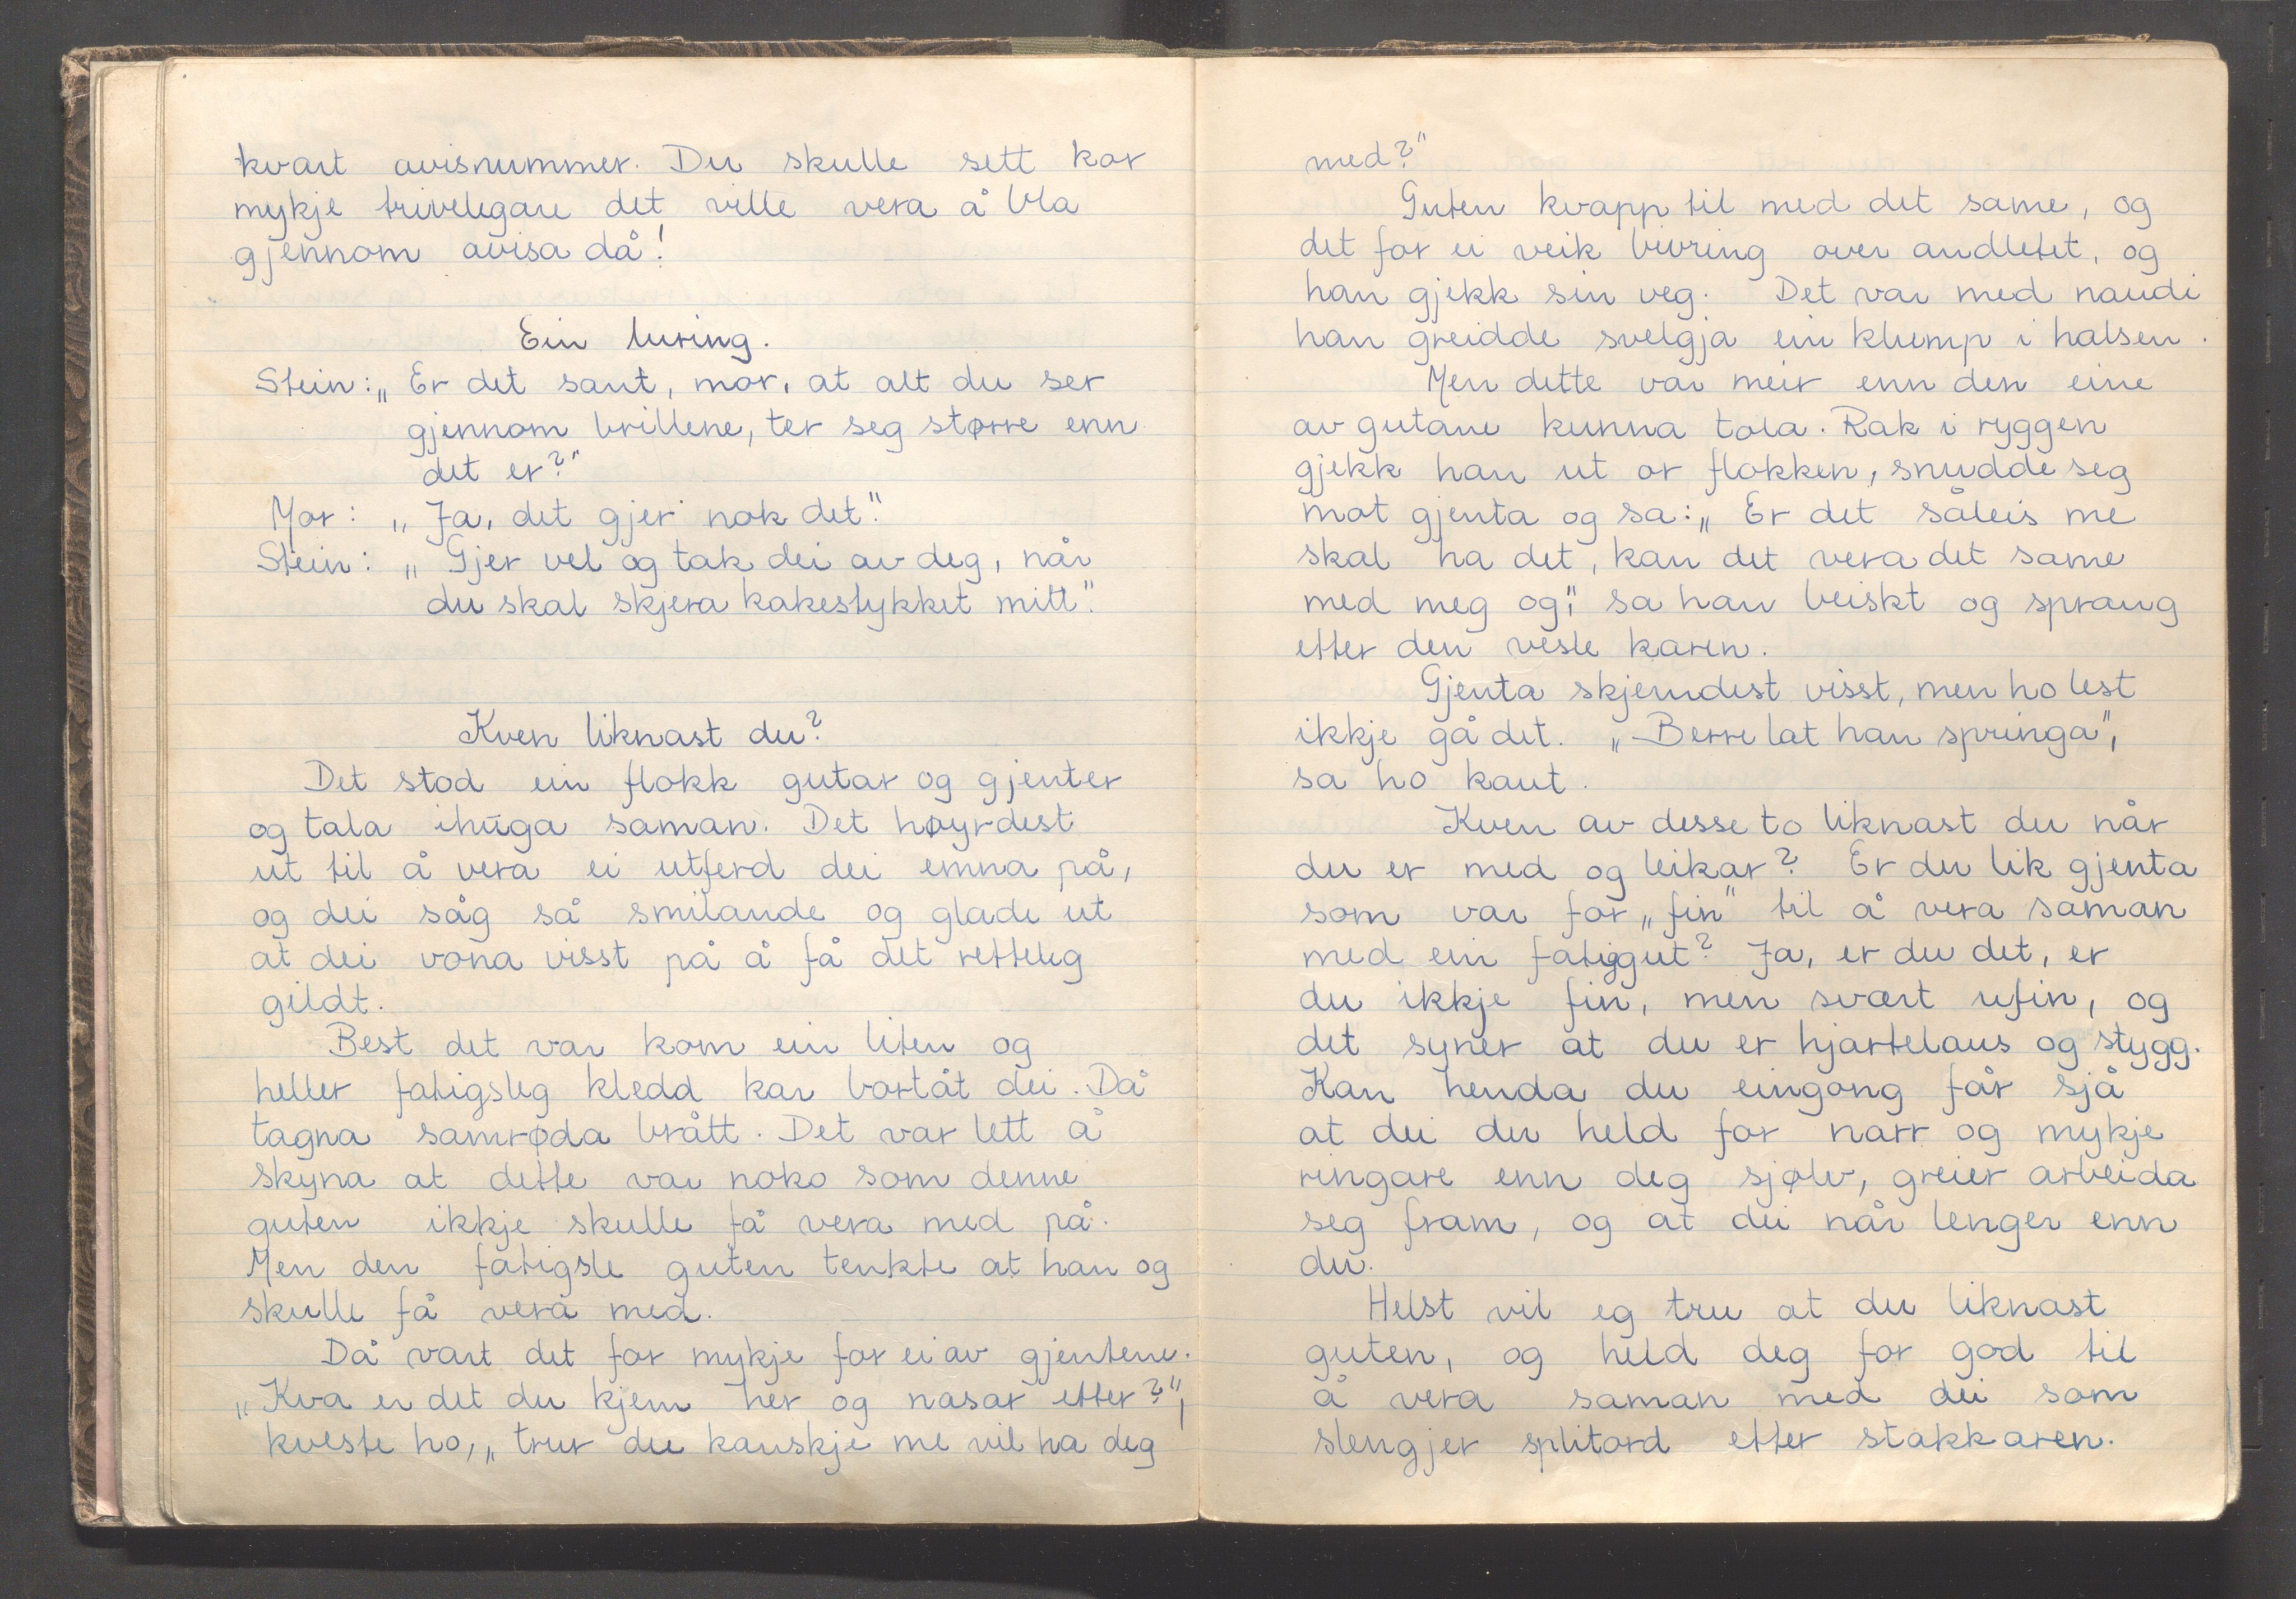 kvart avisnummer. Du skulle sett kor
mykje trivelegare det ville vera å bla
gjennom avisa då!
Ein luring.
Stein: „Er det sant, mor, at alt du ser
gjennom brillene, ter seg større enn
det er?"
Mor: „Ja, det gjer nok det."
Stein: „Gjer vel og tak dei av deg, når
du skal skjera kakestykket mitt."
Kven liknast du?
Det stod ein flokk gutar og gjenter
og tala ihuga saman. Det høyrdest
ut til å vera ei utferd dei emna på,
og dei såg så smilande og glade ut
at dei vona visst på å få det retteleg
gildt.
Best det var kom ein liten og
heller fatigsleg kledd kar bortåt dei. Då
tagna samrøda brått. Det var lett å
skyna at dette var noko som denne
guten ikkje skulle få vera med på.
Men den fatigsle guten tenkte at han og
skulle få vera med.
Då vart det for mykje for ei av gjentene.
„Kva er det du kjem her og nasar etter?",
kveste ho, „trur du kanskje me vil ha deg
med?"
Guten kvapp til med det same, og
det for ei veik bivring over andletet, og
han gjekk sin veg. Det var med naudi
han greidde svelgja ein klump i halsen.
Men dette var meir enn den eine
av gutane kunna tola. Rak i ryggen
gjekk han ut or flokken, snudde seg
mot gjenta og sa: „Er det såleis me
skal ha det, kan det vera det same
med meg og", sa han beiskt og sprang
etter den vesle karen.
Gjenta skjemdest visst, men ho lest
ikkje gå det. „Berre lat han springa",
sa ho kaut.
Kven av desse to liknast du når
du er med og leikar? Er du lik gjenta
som var for „fin" til å vera saman
med ein fatiggut? Ja, er du det, er
du ikkje fin, men svært ufin, og
det syner at du er hjartelaus og stygg.
Kan henda du eingong får sjå
at dei du held for narr og mykje
ringare enn deg sjølv, greier arbeida
seg fram, og at dei når lenger enn
du.
Helst vil eg tru at du liknast
guten, og held deg for god til
å vera saman med dei som
slengjer splitord etter stakkaren.